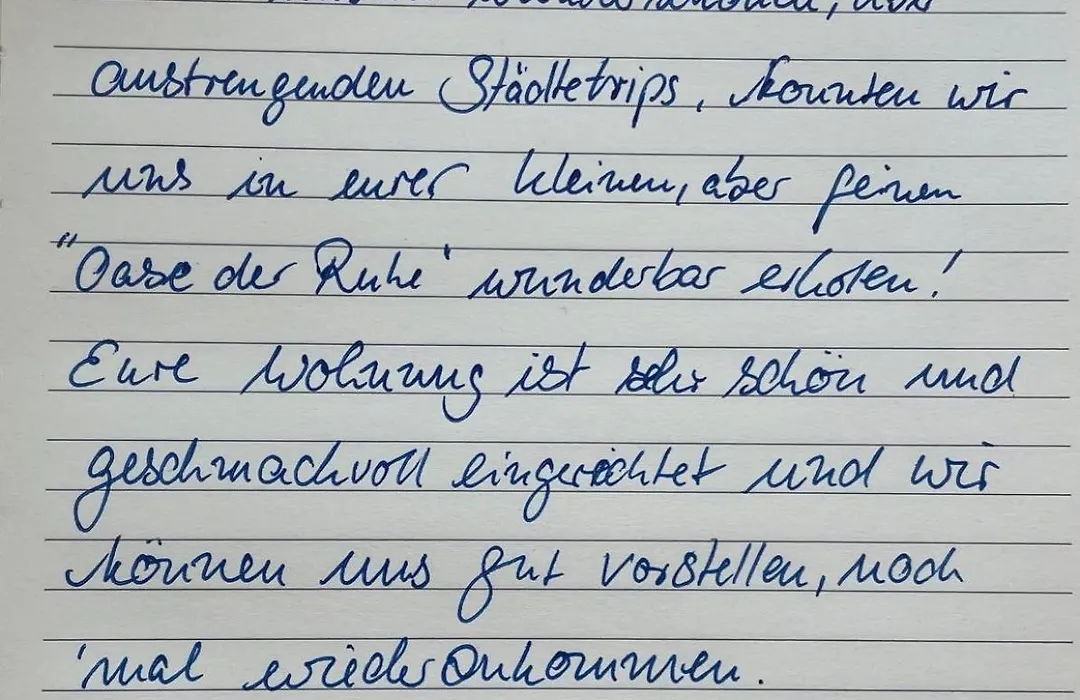 anstrengenden Städtetrips, konnten wir
uns in eurer kleinen, aber feinen
"Oase der Ruhe" wunderbar erholen!
Eure Wohnung ist sehr schön und
geschmackvoll eingerichtet und wir
können uns gut vorstellen, noch
'mal wiederzukommen.